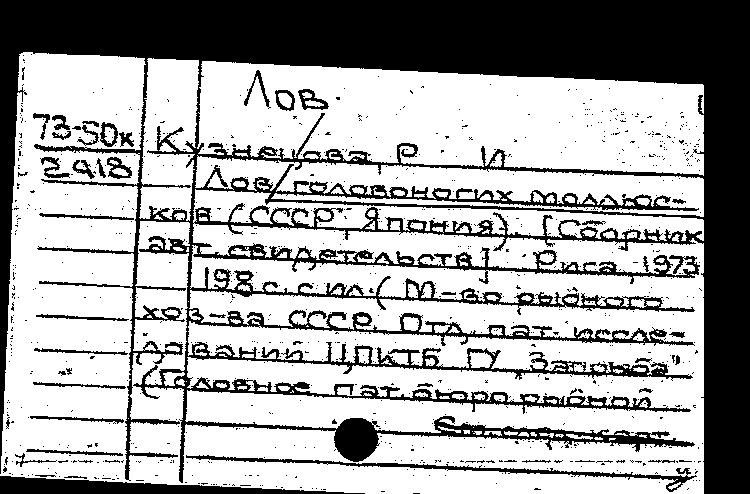 Лов.
73-50к Кузнецова, Р. И.
2418 Лов головоногих моллюс-
ков (СССР, Япония). [Сборник
авт. свидетельств]. Рига, 1973
198 с. с ил. (М-во рыбного
хоз-ва СССР. Отд. пат. иссле-
дований ЦПКТБ ГУ „Запрыба"
(Головное пат. бюро рыбной
См. след. карт.
у